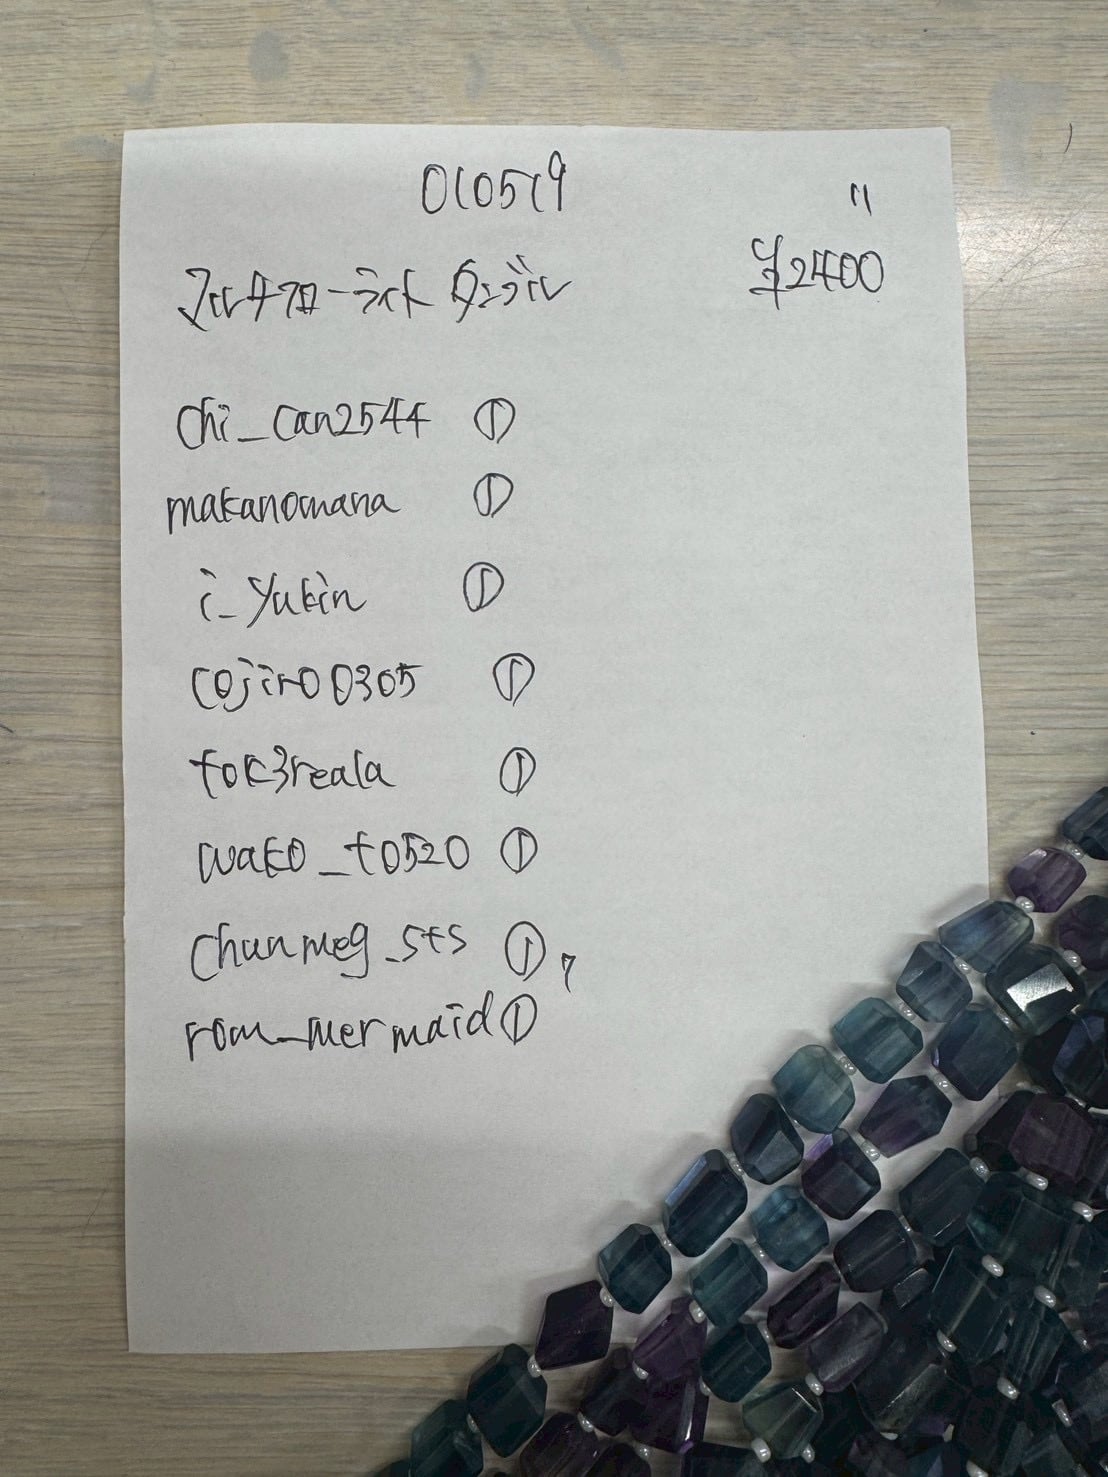 010519
11
マルチフローライト タンブル
¥2400
chi_can2544 ①
makanomana ①
i_yukin ①
cojiro0305 ①
tok3reala ①
wako_t0520 ①
chunmeg_sts ① 7
rom_mermaid ①